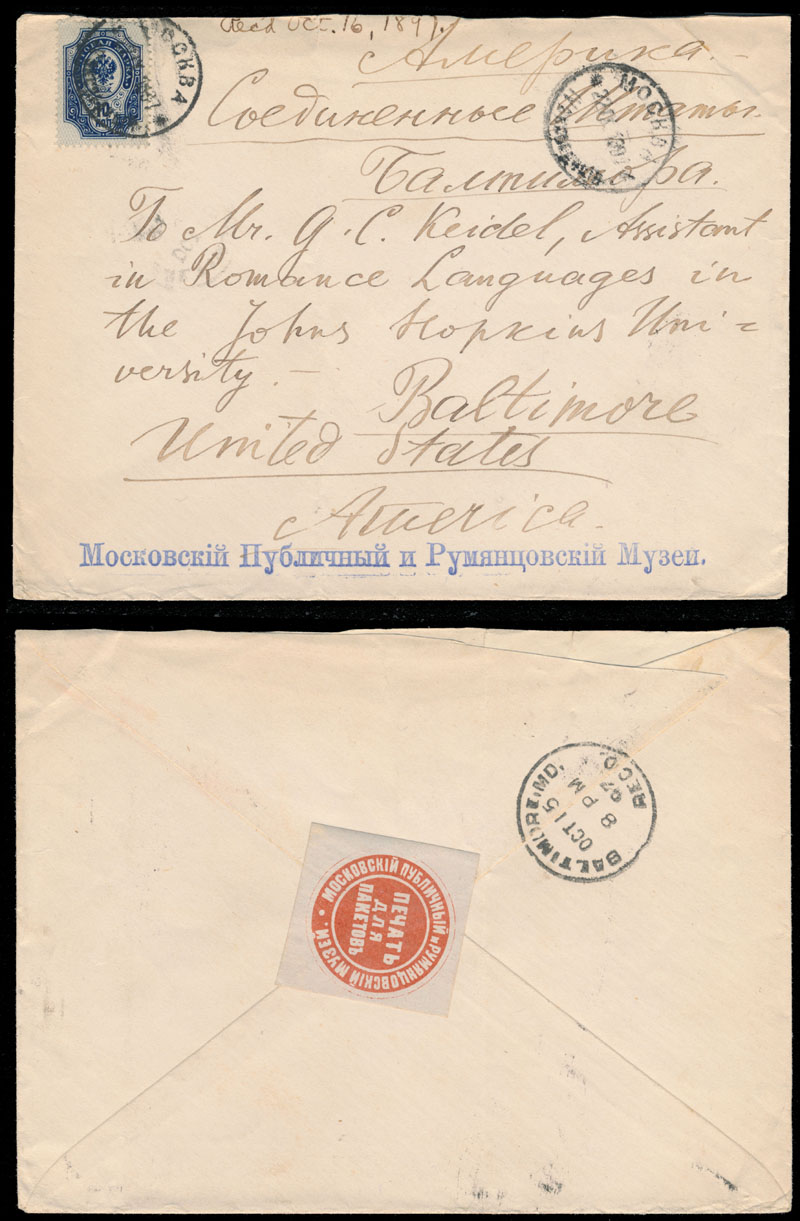 Recd Oct. 16, 1897.
МОСКВА
1897
10
КОП
Америка.—
Соединенные Штаты.
МОСКВА
Балтимора.
To Mr. G. C. Keidel, Assistant
in Romance Languages in
the Johns Hopkins Uni=
versity. —
Baltimore
United States
America.
Московскій Публичный и Румянцовскій Музеи.
BALTIMORE, MD.
OCT 15
8 PM
97
REC'D.
МОСКОВСКІЙ ПУБЛИЧНЫЙ и РУМЯНЦОВСКІЙ МУЗЕИ.
ПЕЧАТЬ
ДЛЯ
ПАКЕТОВЪ